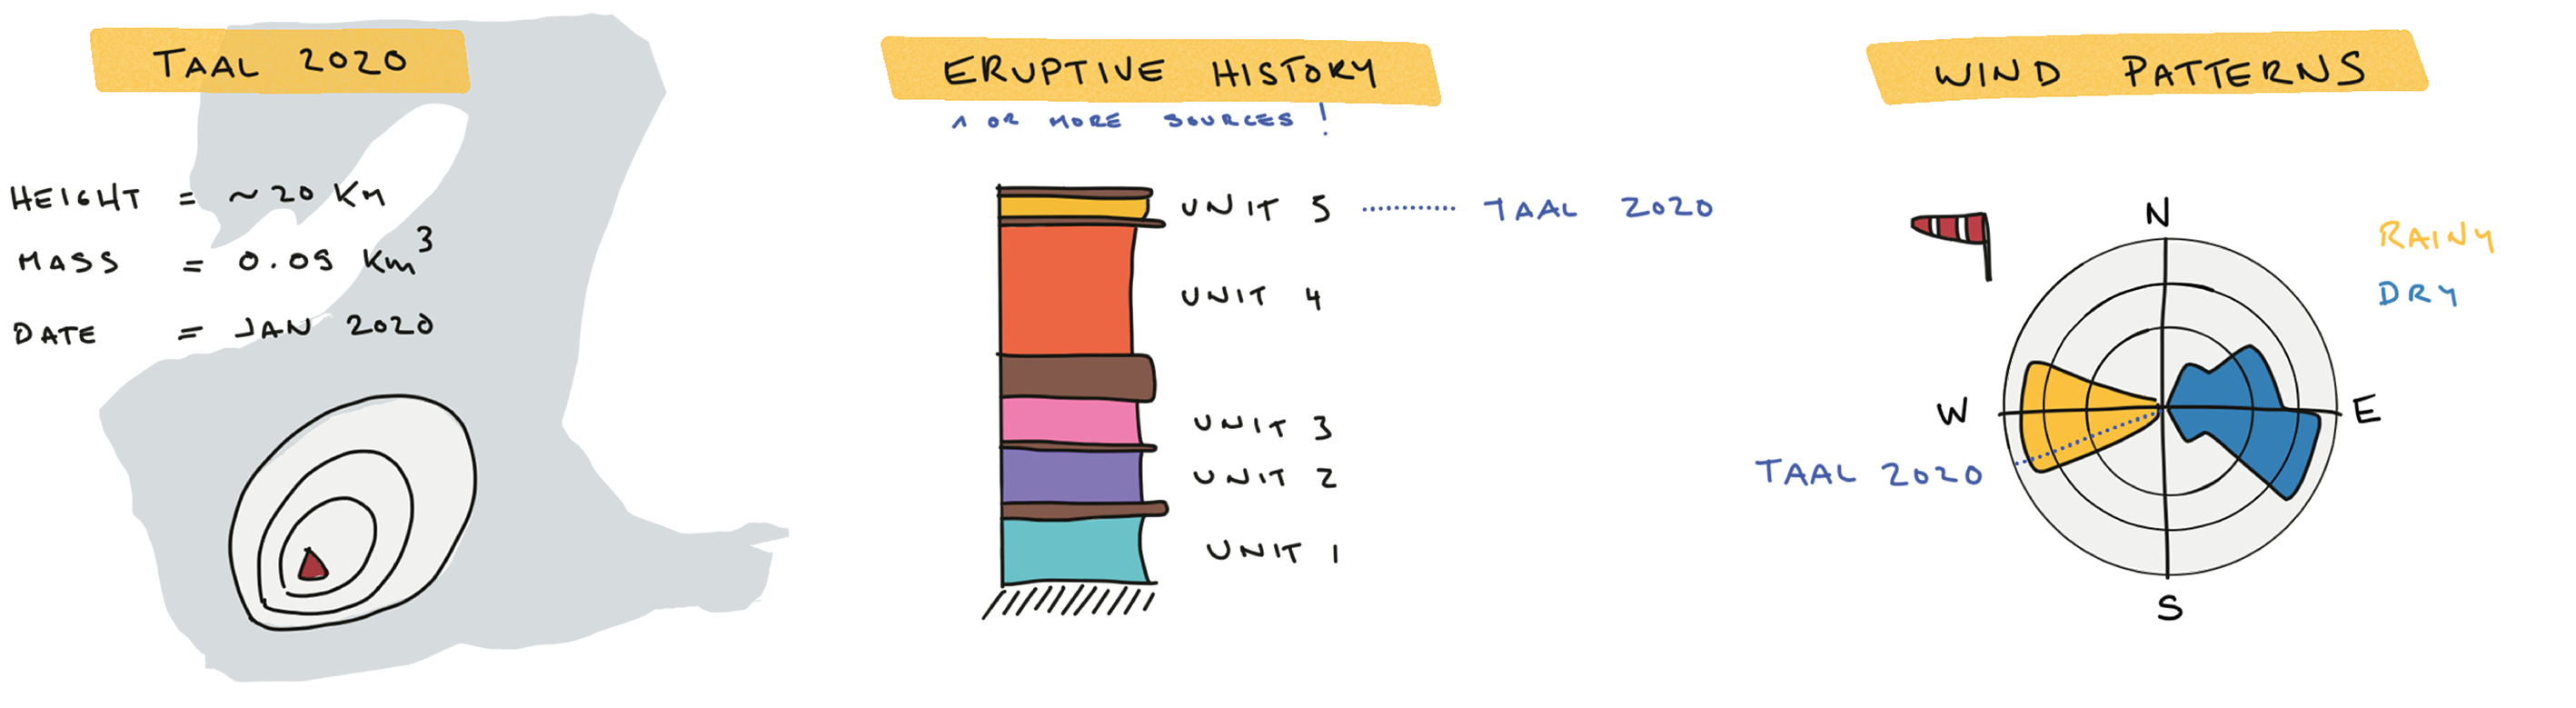 TAAL 2020
HEIGHT = ~20 Km
MASS = 0.05 Km³
DATE = JAN 2020
ERUPTIVE HISTORY
1 OR MORE SOURCES !
UNIT 5 ............ TAAL 2020
UNIT 4
UNIT 3
UNIT 2
UNIT 1
WIND PATTERNS
N
RAINY
DRY
W
E
TAAL 2020
S